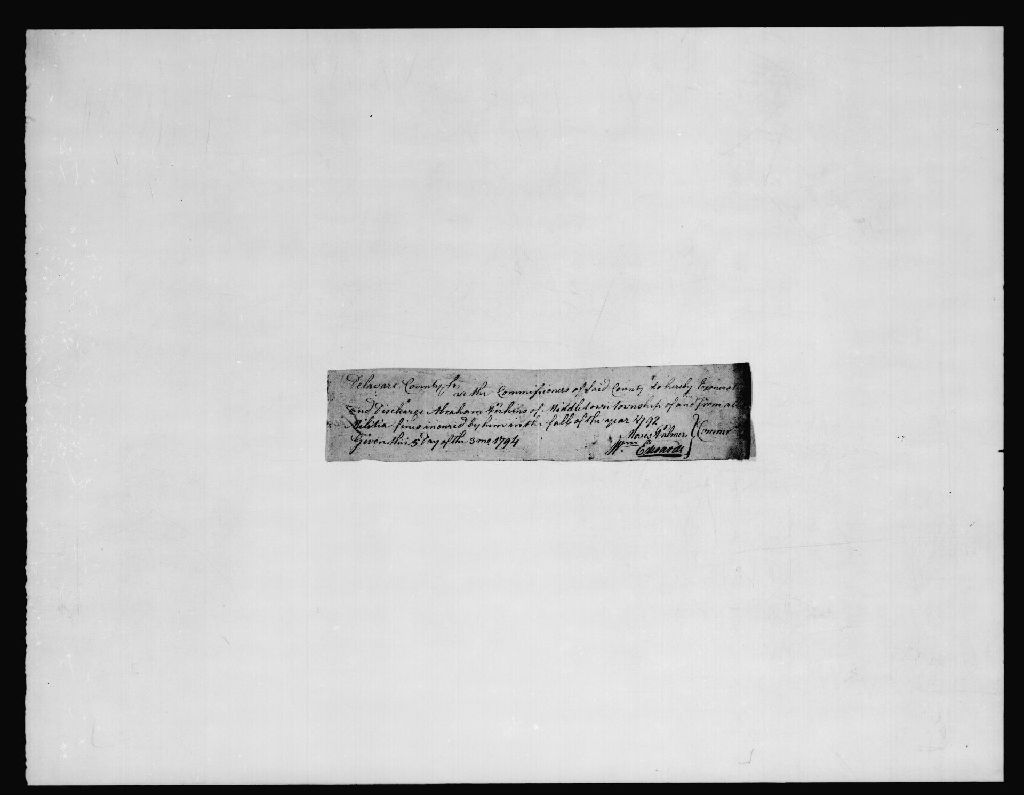 Delaware County ss
we the Commissioners of said County do hereby Exonerate
and Discharge Abraham Perkins of Middletown township of and from a
Militia fines incured by him in the fall of the year 1792
Given this 5 Day of the 3 mo 1794
Moses Palmer
Wm Edwards
Commrs